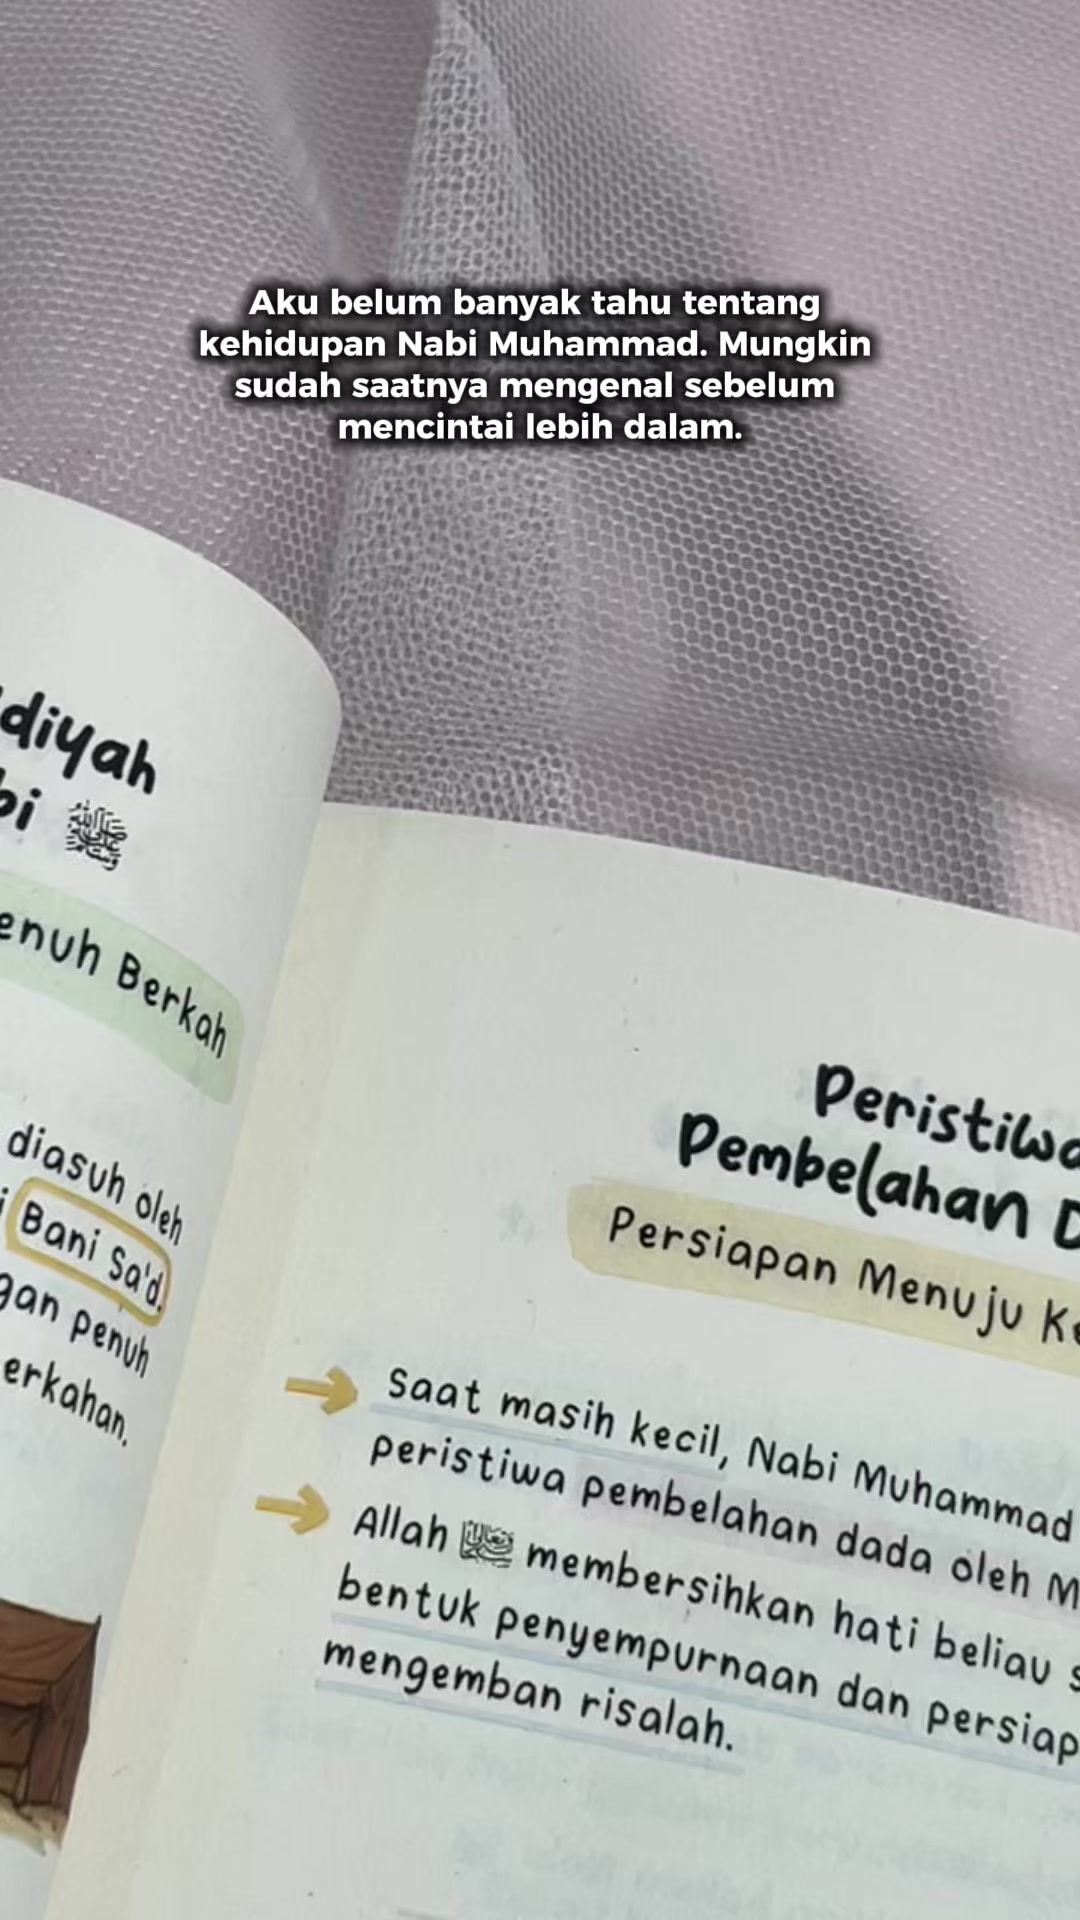 Aku belum banyak tahu tentang
kehidupan Nabi Muhammad. Mungkin
sudah saatnya mengenal sebelum
mencintai lebih dalam.
diyah
bi ﷺ
enuh Berkah
diasuh oleh
i Bani Sa'd.
gan penuh
erkahan.
Peristiwa
Pembelahan D
Persiapan Menuju Ke
Saat masih kecil, Nabi Muhammad
peristiwa pembelahan dada oleh M
Allah membersihkan hati beliau s
bentuk penyempurnaan dan persiap
mengemban risalah.